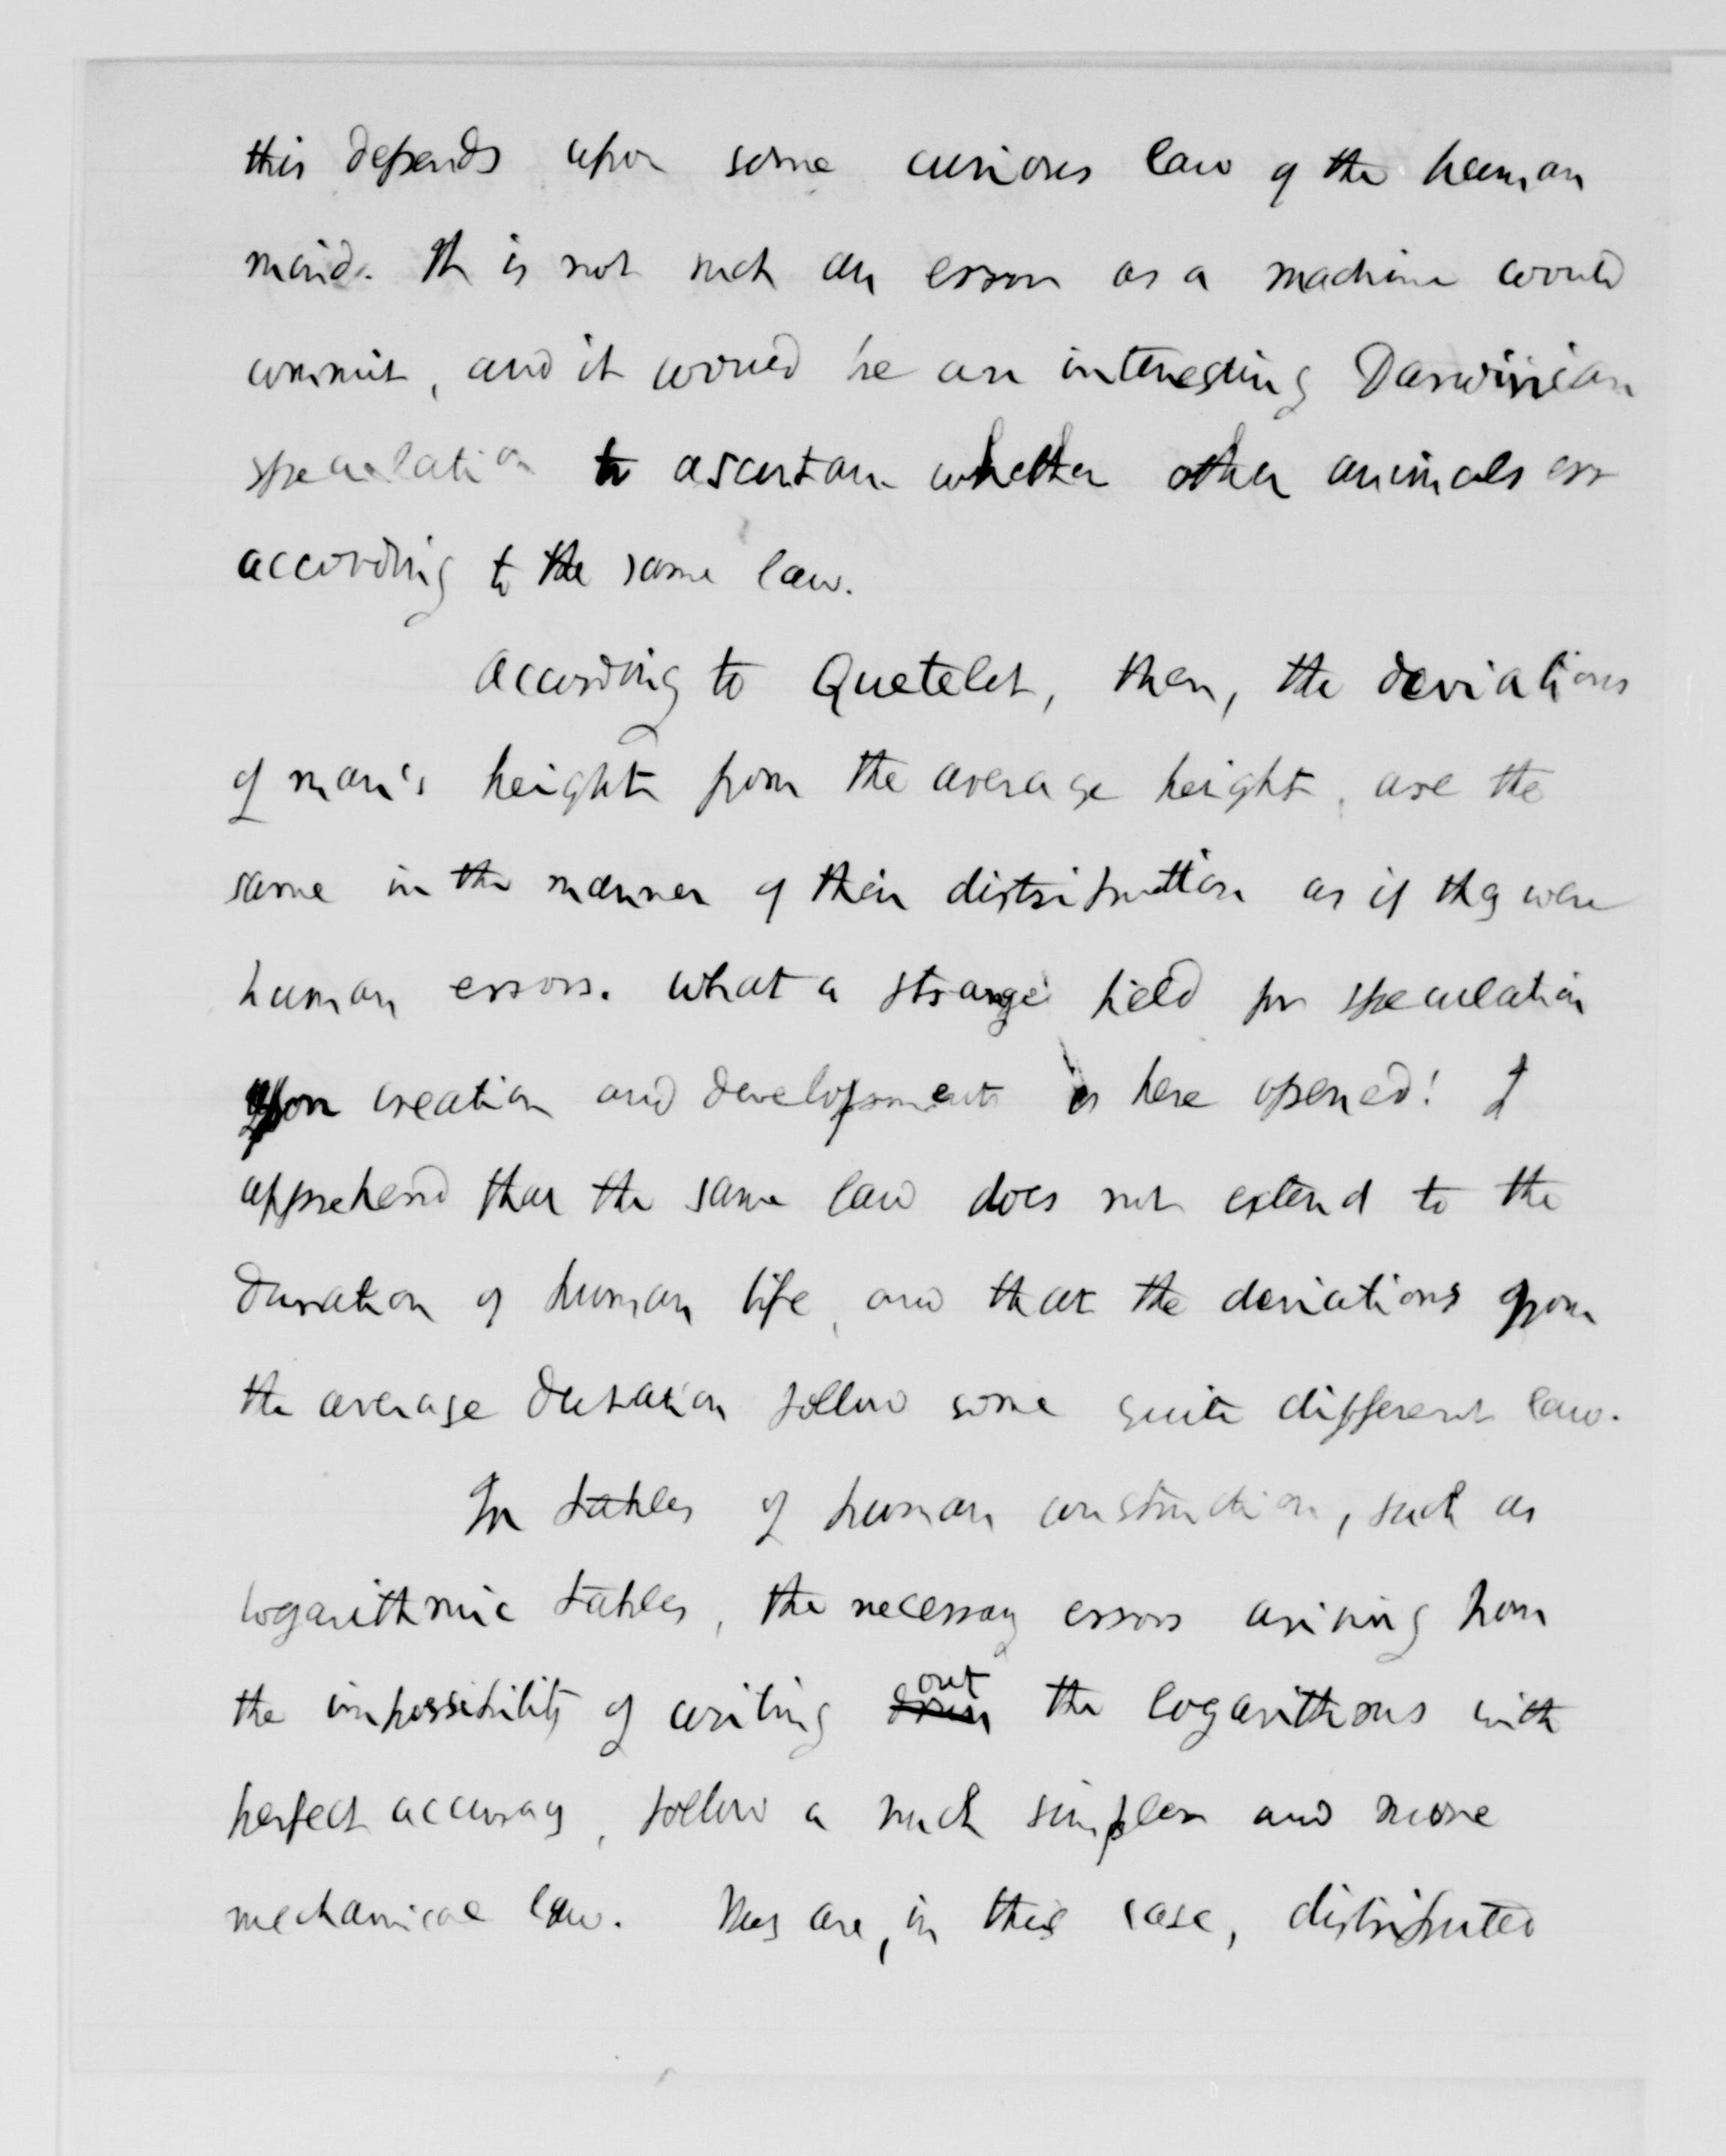 this depends upon some curious law of the human
mind. It is not such an error as a machine would
commit, and it would be an interesting Darwinian
speculation to ascertain whether other animals err
according to the same law.
According to Quetelet, then, the deviations
of man's height from the average height, are the
same in the manner of their distribution as if they were
human errors. What a strange field for speculation
upon creation and development is here opened! I
apprehend that the same law does not extend to the
duration of human life, and that the deviations from
the average duration follow some quite different law.
In tables of human construction, such as
logarithmic tables, the necessary errors arising from
the impossibility of writing out the logarithms with
perfect accuracy, follow a much simpler and more
mechanical law. They are, in this case, distributed